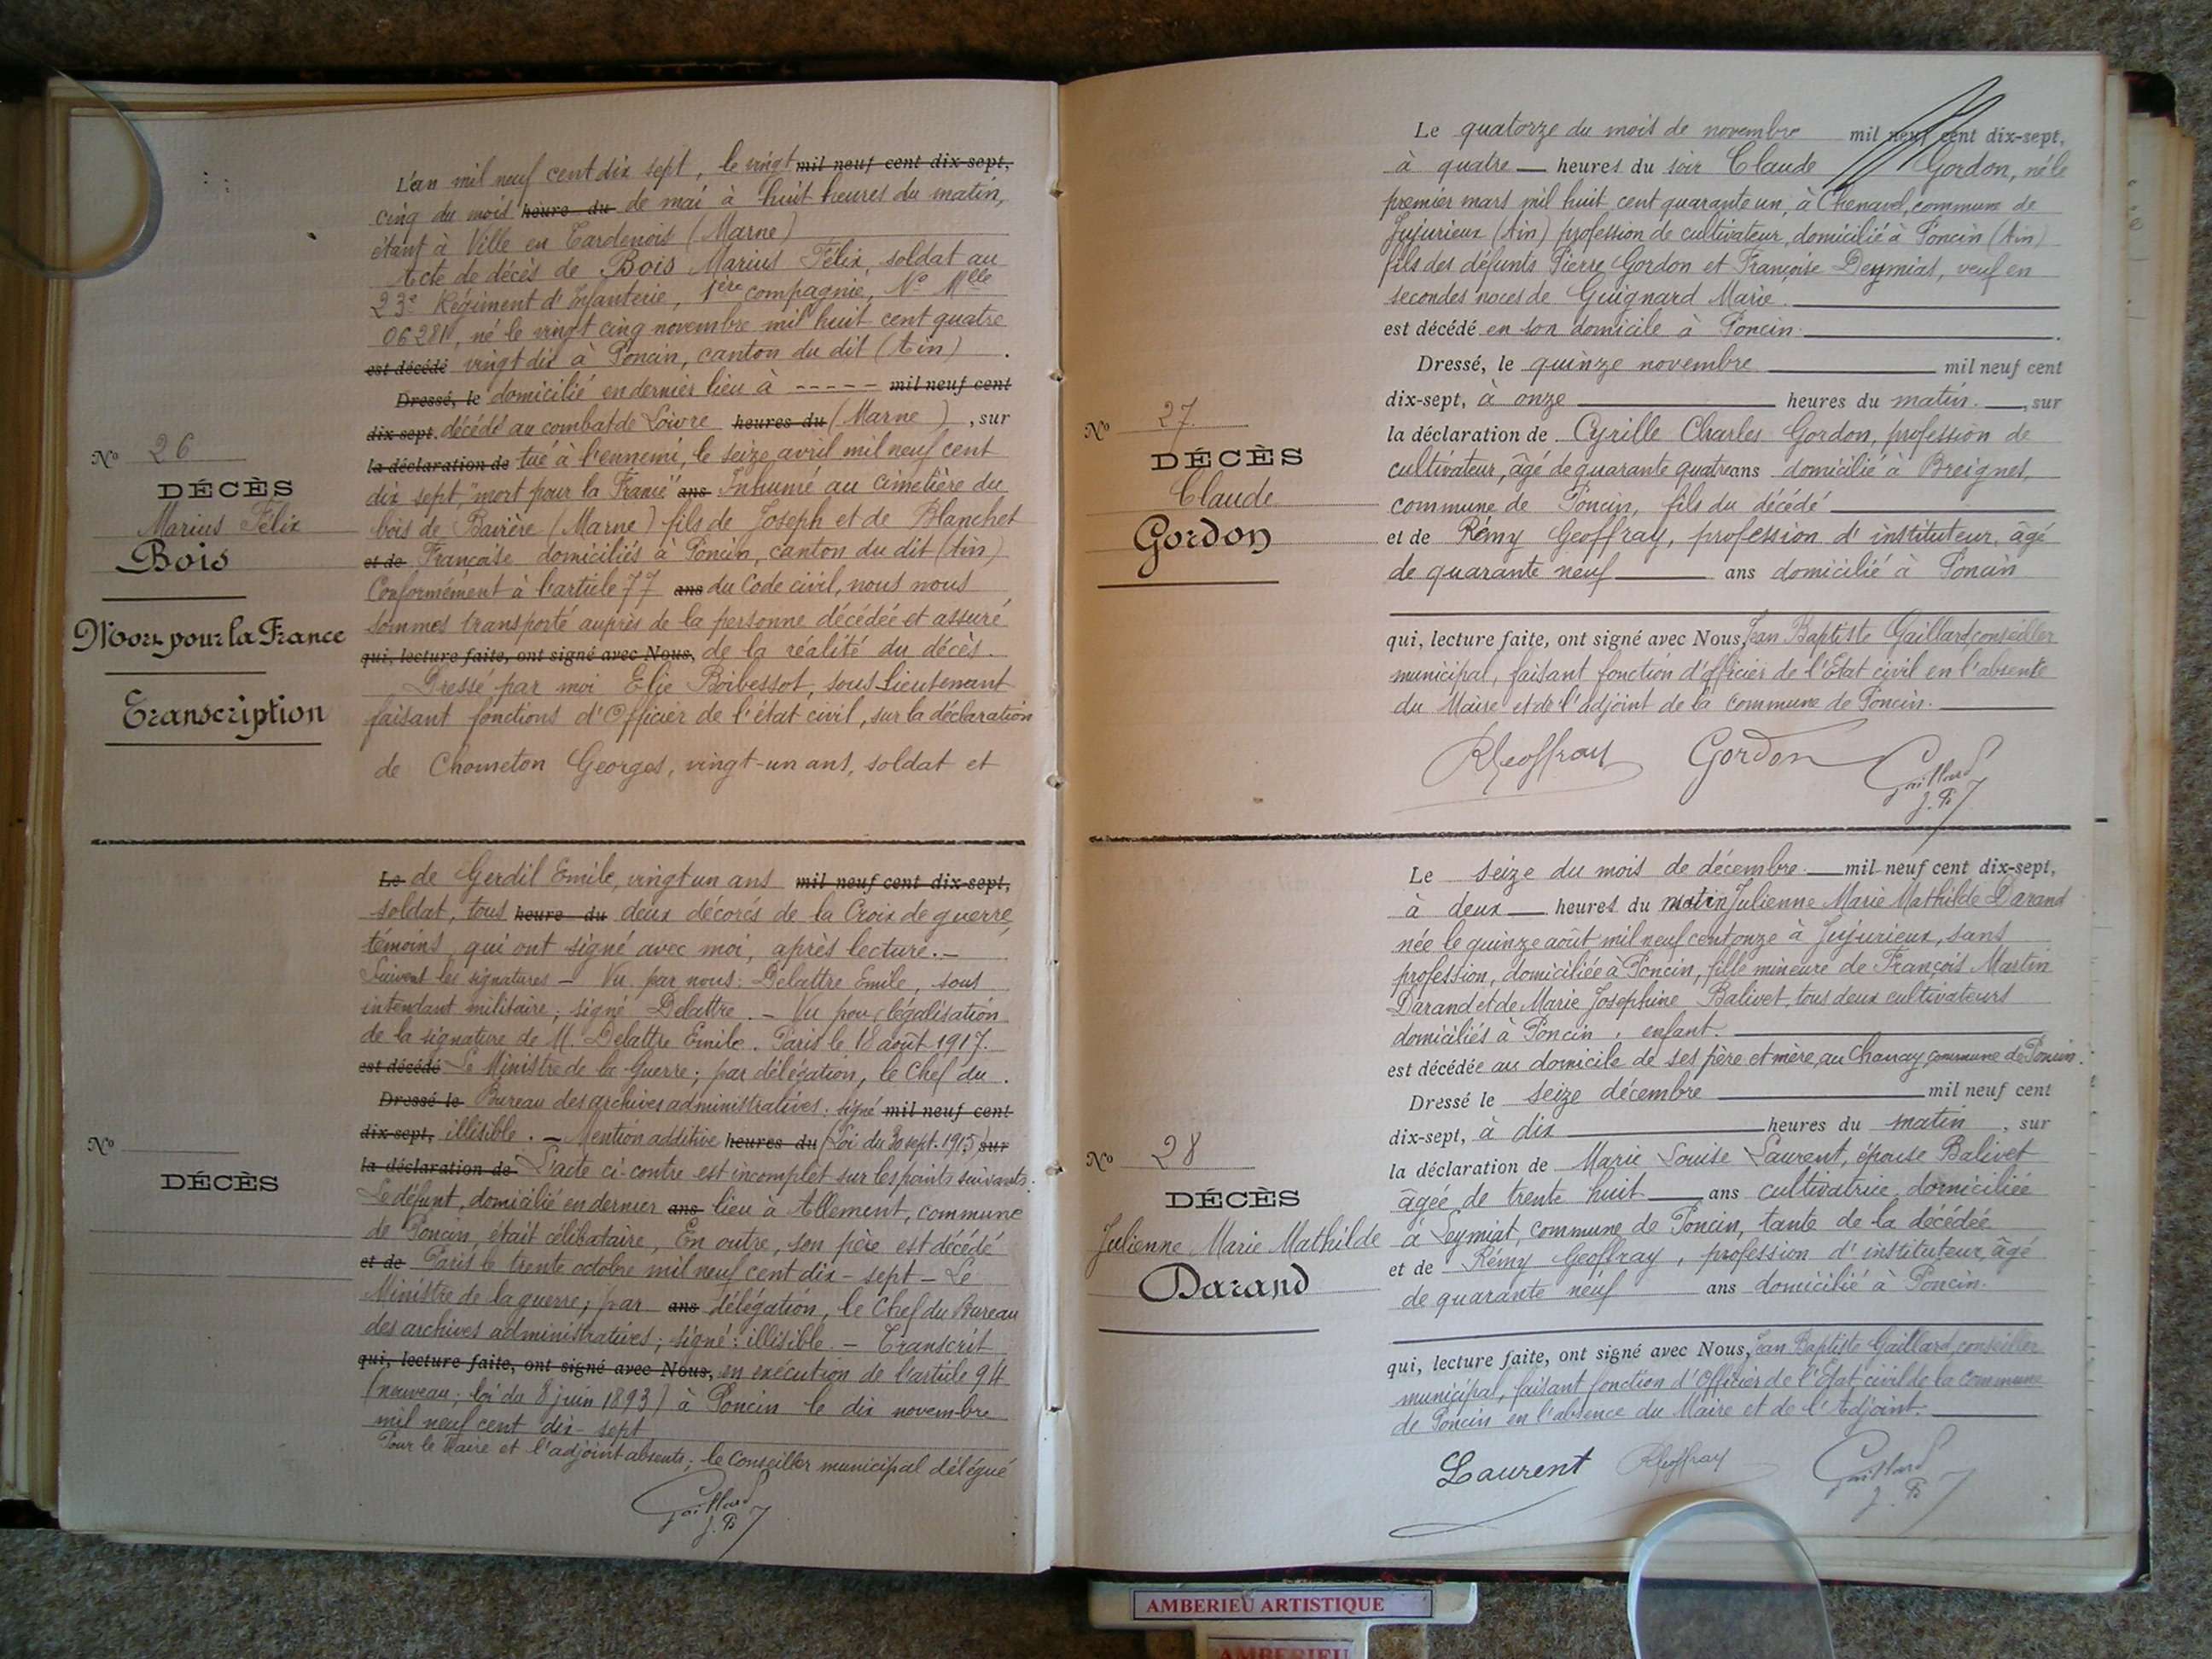 L'an mil neuf cent dix sept, le vingt mil neuf cent dix-sept,
cinq du mois heure du de mai à huit heures du matin,
étant à Ville en Tardenois (Marne)
Acte de décès de Bois Marius Félix, soldat au
23e Régiment d'Infanterie, 1ère compagnie, No Mlle
06281, né le vingt cinq novembre mil huit cent quatre
est décédé vingt dix à Poncin, canton du dit (Ain) .
Dressé, le domicilié en dernier lieu à ----- mil neuf cent
dix-sept, décédé au combat de Loivre heures du (Marne) , sur
la déclaration de tué à l'ennemi, le seize avril mil neuf cent
dix sept, "mort pour la France" ans Inhumé au cimetière du
bois de Bavière (Marne) fils de Joseph et de Blanchet
et de Françoise domiciliés à Poncin, canton du dit (Ain)
Conformément à l'article 77 ans du Code civil, nous nous
sommes transporté auprès de la personne décédée et assuré
qui, lecture faite, ont signé avec Nous, de la réalité du décès.
Dressé par moi Elie Boibessot, sous-lieutenant
faisant fonctions d'Officier de l'état civil, sur la déclaration
de Chometon Georges, vingt-un ans, soldat et
No 26
DÉCÈS
Marius Félix
Bois
Mort pour la France
Transcription
Le de Gerdil Emile, vingt un ans mil neuf cent dix-sept,
soldat, tous heure du deux décorés de la Croix de guerre,
témoins qui ont signé avec moi, après lecture.-
Suivent les signatures - Vu par nous: Delattre Emile, sous
intendant militaire; signé Delattre. - Vu pour légalisation
de la signature de M. Delattre Emile. Paris le 18 août 1917.
est décédé Le Ministre de la Guerre; par délégation, le Chef du .
Dressé le Bureau des archives administratives: signé mil neuf cent
dix-sept, illisible. - Mention additive heures du (Loi du 30 sept. 1915) sur
la déclaration de L'acte ci-contre est incomplet sur les points suivants:
Le défunt, domicilié en dernier ans lieu à Allement, commune
de Poncin, était célibataire, En outre, son père est décédé
et de Paris le trente octobre mil neuf cent dix-sept - Le
Ministre de la guerre; par ans délégation, le Chef du Bureau
des archives administratives; signé: illisible. - Transcrit
qui, lecture faite, ont signé avec Nous, en exécution de l'article 94
(nouveau; loi du 8 juin 1893) à Poncin le dix novembre
mil neuf cent dix-sept
Pour le Maire et l'adjoint absents; le Conseiller municipal délégué
Gaillard
J. B
No
DÉCÈS
Le quatorze du mois de novembre mil neuf cent dix-sept,
à quatre heures du soir Claude Gordon, né le
premier mars mil huit cent quarante un, à Chenavel, commune de
Jujurieux (Ain) profession de cultivateur, domicilié à Poncin (Ain)
fils des défunts Pierre Gordon et Françoise Deymiat, veuf en
secondes noces de Guignard Marie.
est décédé en son domicile à Poncin.
Dressé, le quinze novembre mil neuf cent
dix-sept, à onze heures du matin. , sur
la déclaration de Cyrille Charles Gordon, profession de
cultivateur, âgé de quarante quatre ans domicilié à Breignes,
commune de Poncin, fils du décédé
et de Rémy Geoffray, profession d'instituteur, âgé
de quarante neuf ans domicilié à Poncin
qui, lecture faite, ont signé avec Nous, Jean Baptiste Gaillard, conseiller
municipal, faisant fonction d'officier de l'Etat civil en l'absente
du Maire et de l'adjoint de la commune de Poncin.
RGeoffray Gordon Gaillard
J. B
No 27.
DÉCÈS
Claude
Gordon
Le seize du mois de décembre. mil neuf cent dix-sept,
à deux heures du matin Julienne Marie Mathilde Darand
née le quinze août mil neuf cent onze à Jujurieux, sans
profession, domiciliée à Poncin, fille mineure de François Martin
Darand et de Marie Josephine Balivet, tous deux cultivateurs
domiciliés à Poncin, enfant.
est décédée au domicile de ses père et mère, au Chanay, commune de Poncin.
Dressé le seize décembre mil neuf cent
dix-sept, à dix heures du matin , sur
la déclaration de Marie Louise Laurent, épouse Balivet
âgée de trente huit ans cultivatrice, domiciliée
à Leymiat, commune de Poncin, tante de la décédée
et de Rémy Geoffray, profession d'instituteur, âgé
de quarante neuf ans domicilié à Poncin.
qui, lecture faite, ont signé avec Nous, Jean Baptiste Gaillard, conseiller
municipal, faisant fonction d'Officier de l'Etat civil de la commune
de Poncin en l'absence du Maire et de l'Adjoint.
Laurent RGeoffray Gaillard
J. B
No 28
DÉCÈS
Julienne Marie Mathilde
Darand
AMBERIEU ARTISTIQUE
AMBERIEU